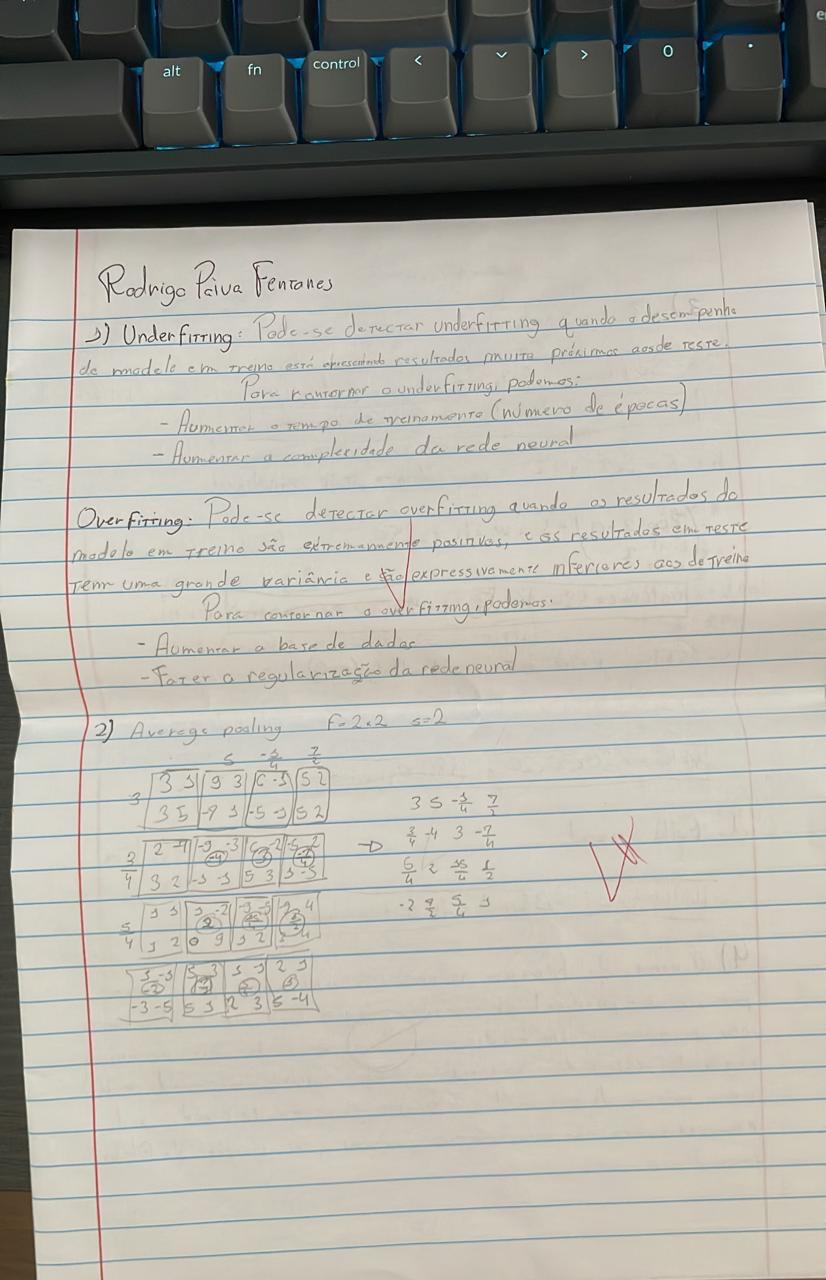 alt fn control < ⌄ > 0 .
Rodrigo Paiva Fentanes
1) Underfitting: Pode-se detectar underfitting quando o desempenho
do modelo em treino está apresentando resultados muito próximos aos de teste.
Para contornar o underfitting, podemos:
- Aumentar o tempo de treinamento (número de épocas)
- Aumentar a complexidade da rede neural
Overfitting: Pode-se detectar overfitting quando os resultados do
modelo em treino são extremamente positivos, e os resultados em teste
tem uma grande variância e são expressivamente inferiores aos de treino
Para contornar o overfitting, podemos:
- Aumentar a base de dados
- Fazer a regularização da rede neural
2) Average pooling F=2×2 s=2
5 -1/4 7/2
3 3 1 9 3 6 -1 5 2
3 5 -1 -5 -1 5 2
3 5 -1/4 7/2
3/4 -4 3 -7/4
3/4 3 2 -1 -1 5 3
2 1/2
5/4 1 2 0 9 1 2
-2 5/4 1
-3 -5 5 1 2 3 5 -4